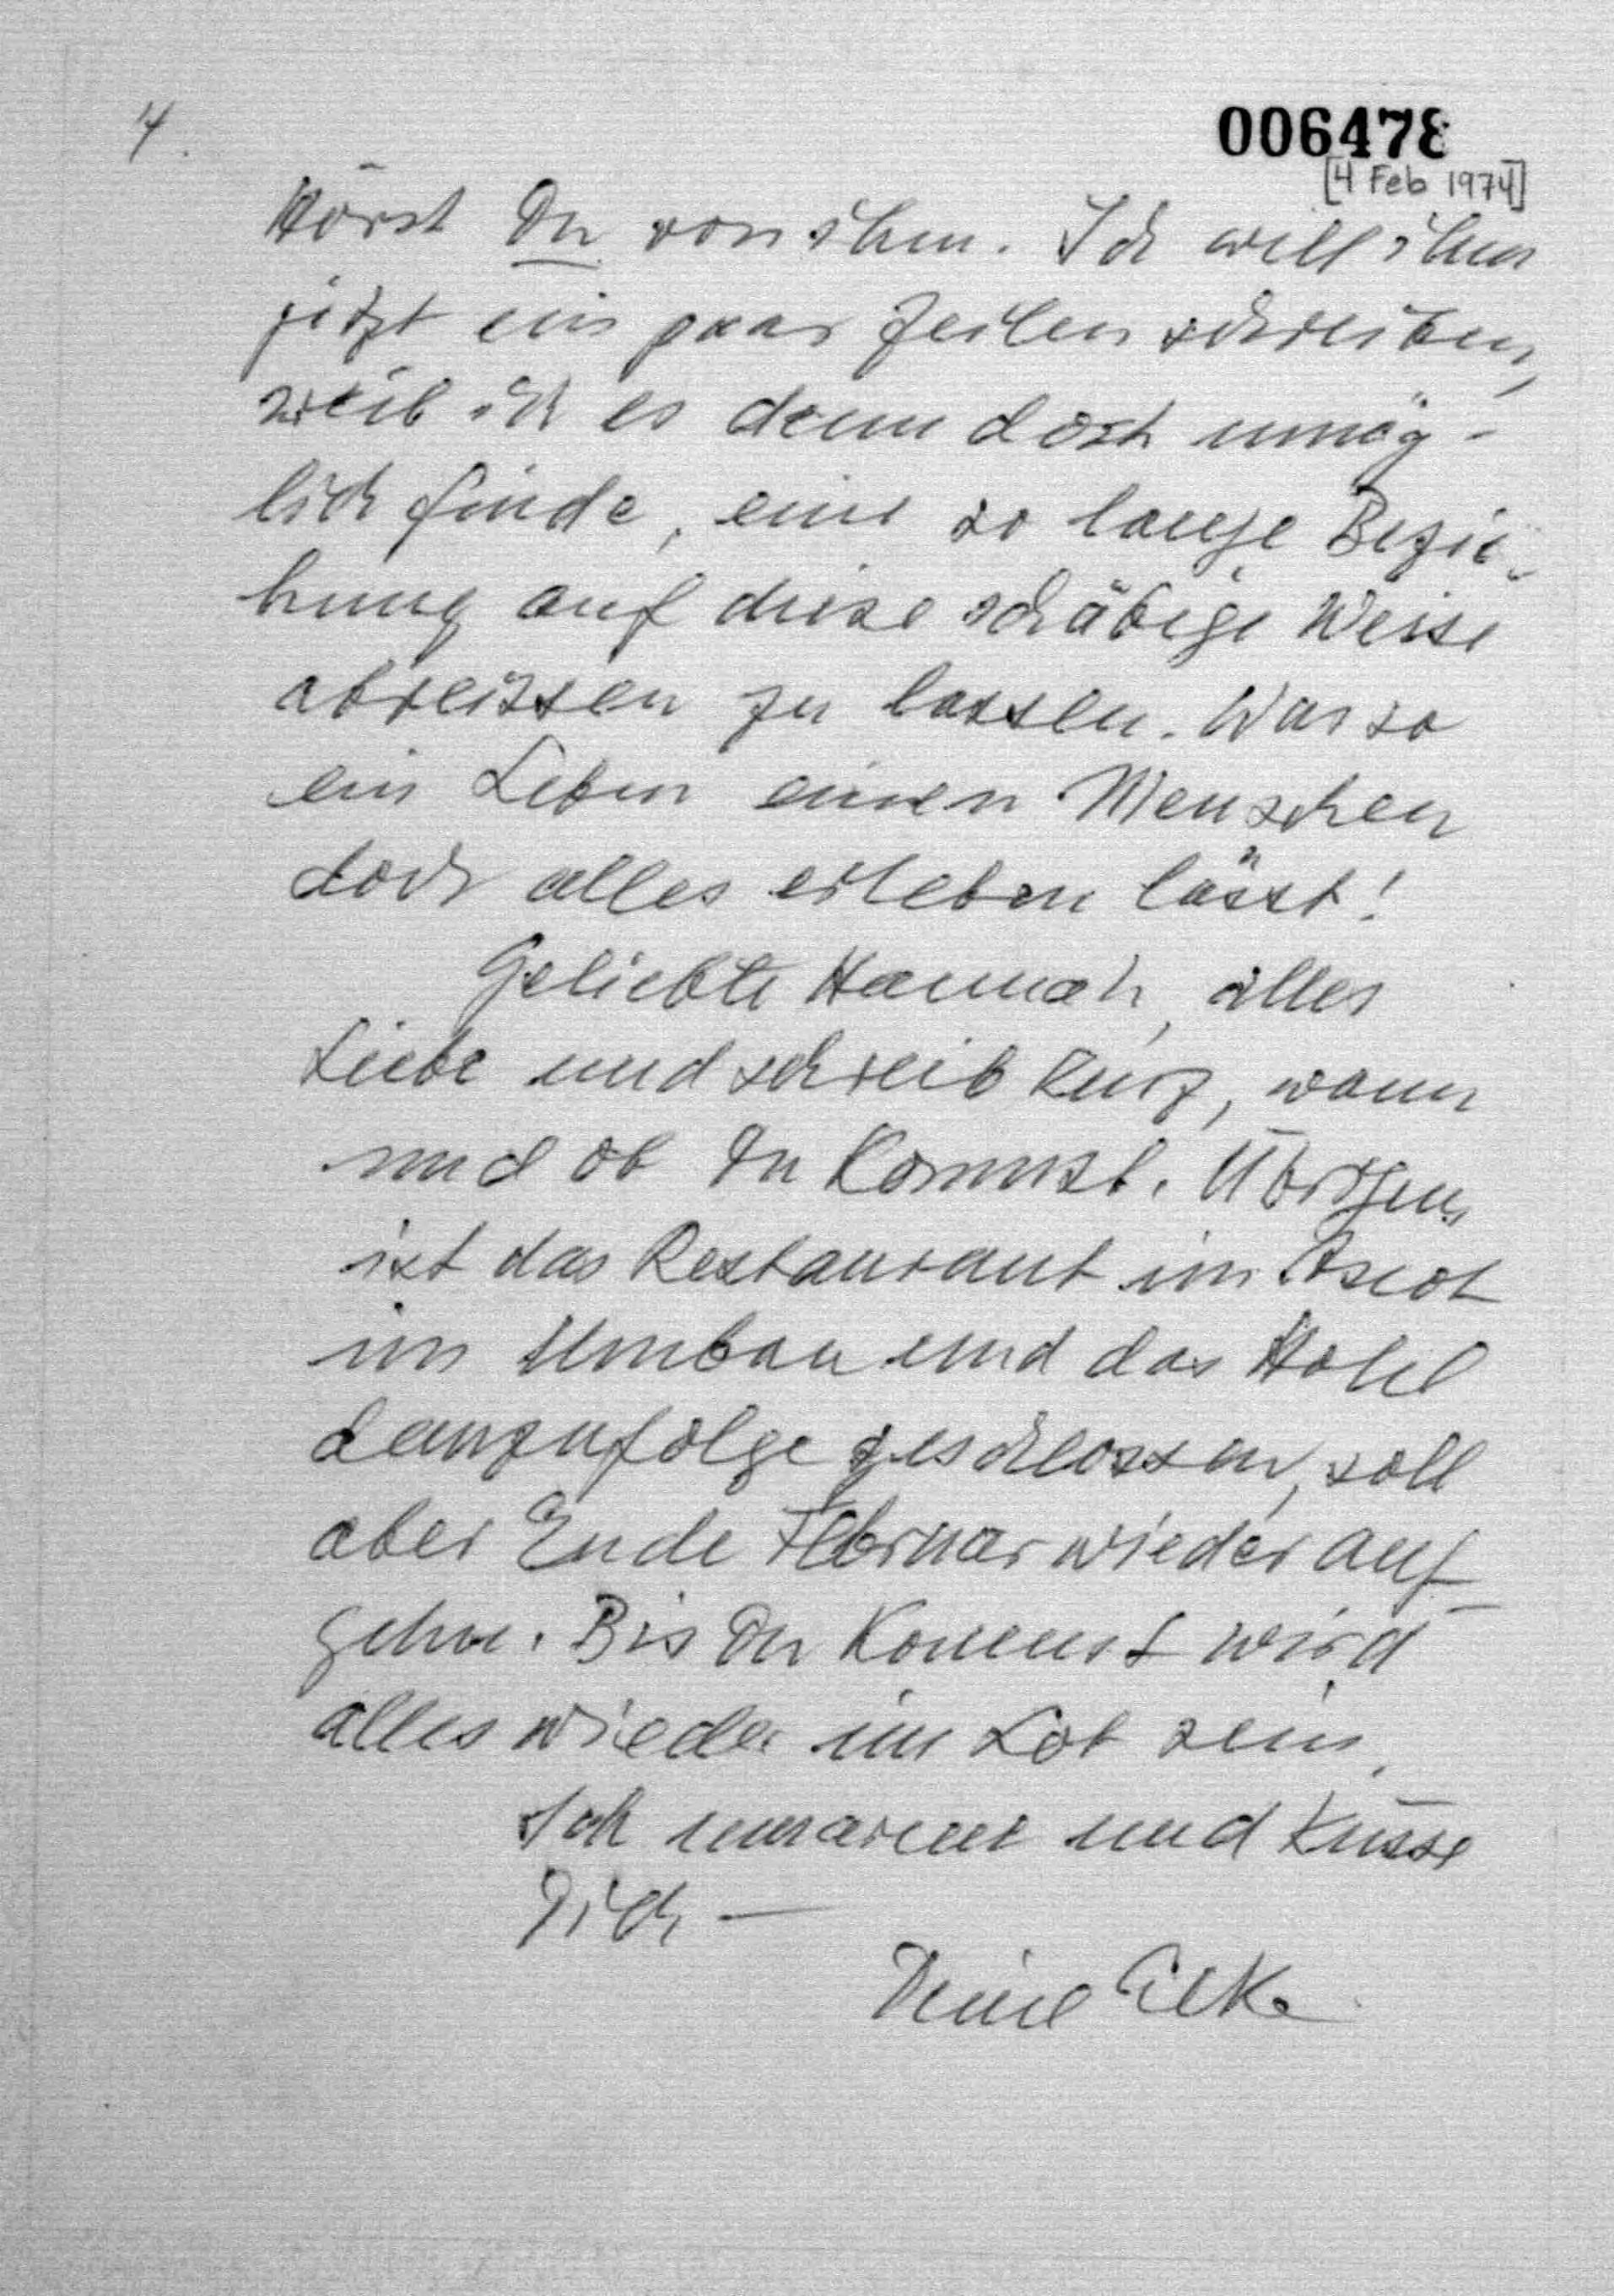 4.
006478
[4 Feb 1974]
Hörst Du von ihm. Ich will ihm
jetzt ein paar Zeilen schreiben,
weil ich es denn doch unmög-
lich finde, eine so lange Bezie-
hung auf diese schäbige Weise
abreissen zu lassen. Was so
ein Leben einen Menschen
doch alles erleben lässt!
Geliebte Hannah, alles
Liebe und schreib kurz, wann
und ob Du kommst. Übrigens
ist das Restaurant im Ascot
im Umbau und das Hotel
demzufolge geschlossen, soll
aber Ende Februar wieder auf-
gehn. Bis Du kommst wird
alles wieder im Lot sein.
Ich umarme und küsse
Dich —
Deine Elke